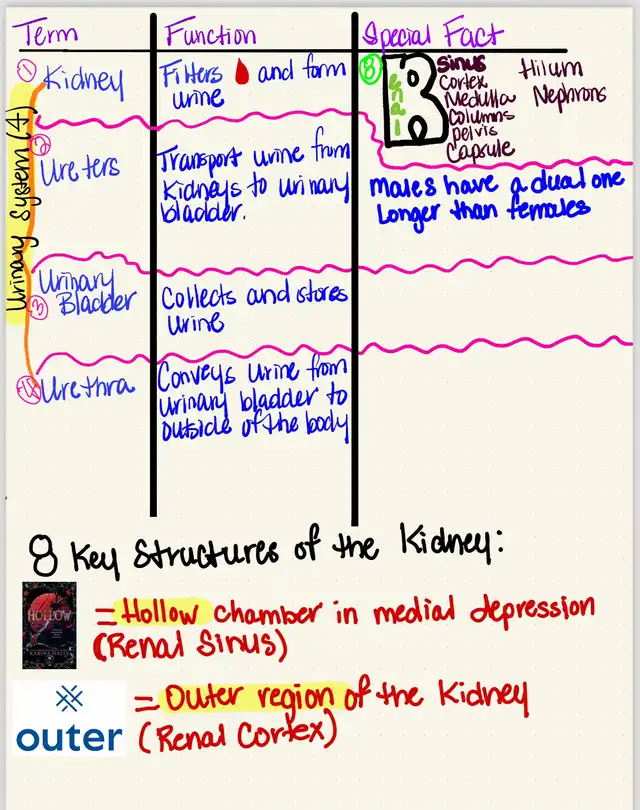 Term Function Special Fact
Urinary System (4)
① Kidney
Filters and form
urine
⑧ Renal
Sinus
Cortex
Medulla
Columns
pelvis
Capsule
Hilum
Nephrons
② Ureters
Transport urine from
kidneys to urinary
bladder.
Males have a dual one
longer than females
③ Urinary
Bladder
Collects and stores
urine
④ Urethra
Conveys urine from
urinary bladder to
outside of the body
8 Key Structures of the Kidney:
HOLLOW
= Hollow chamber in medial depression
(Renal Sinus)
outer
= Outer region of the Kidney
(Renal Cortex)